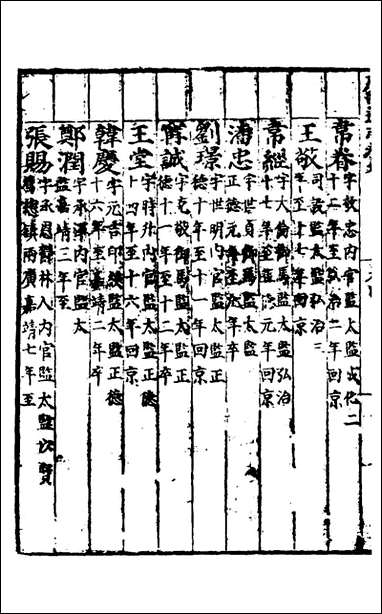 常春字敦忠内官監太監成化二
十二年至弘治二年回京
王敬司設監太監弘治三
年至十七年回京
常經字大倫御馬監太監弘治
十七年至正德元年回京
潘忠字世貞御馬監太監
正德元年至年卒
劉璟字世明内官監太監正
德十年至十一年回京
甯誠字克敬御馬監太監正
德十一年至十二年卒
王堂字時升内官監太監正德
十四年至十六年回京
韓慶字元吉印綬監太監正德
十六年至嘉靖二年卒
鄭潤字承澤内官監太
監嘉靖三年至
張賜字承恩林人内官監太監以賢
舊總鎮兩廣嘉靖七年至